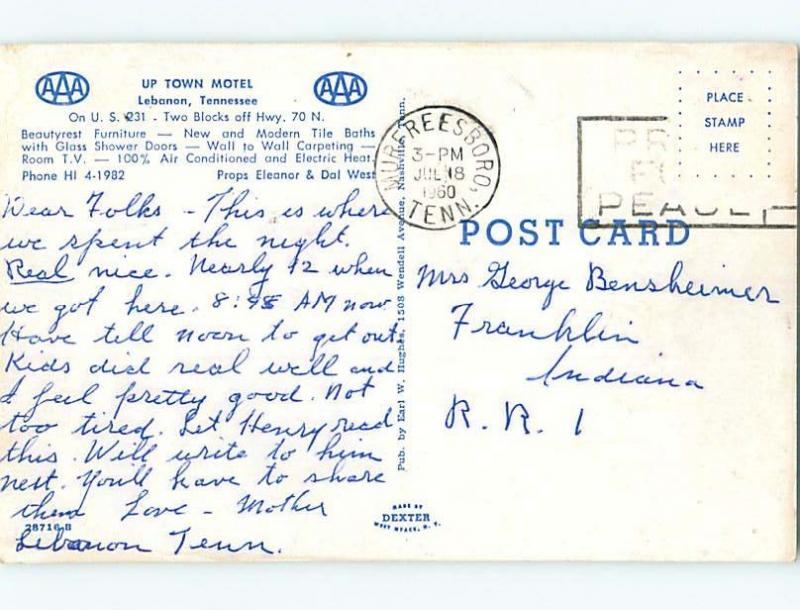 AAA
UP TOWN MOTEL
AAA
Lebanon, Tennessee
On U. S. 231 - Two Blocks off Hwy. 70 N.
Beautyrest Furniture — New and Modern Tile Baths
with Glass Shower Doors — Wall to Wall Carpeting —
Room T.V. — 100% Air Conditioned and Electric Heat.
Phone HI 4-1982 Props Eleanor & Dal West
Dear Folks - This is where
we spent the night.
Real nice. Nearly 12 when
we got here. 8:45 AM now
Have tell noon to get out
Kids did real well and
I feel pretty good. Not
too tired. Let Henry read
this. Will write to him
next. You'll have to share
them Love - Mother
28716-B
Lebanon Tenn.
Pub. by Earl W. Hughes, 1508 Wendell Avenue, Nashville, Tenn.
MURFREESBORO,
3-PM
JUL 18
1960
TENN.
PLACE
STAMP
HERE
POST CARD
Mrs George Bensheimer
Franklin
Indiana
R. R. 1
MADE BY
DEXTER
WEST NYACK, N. Y.